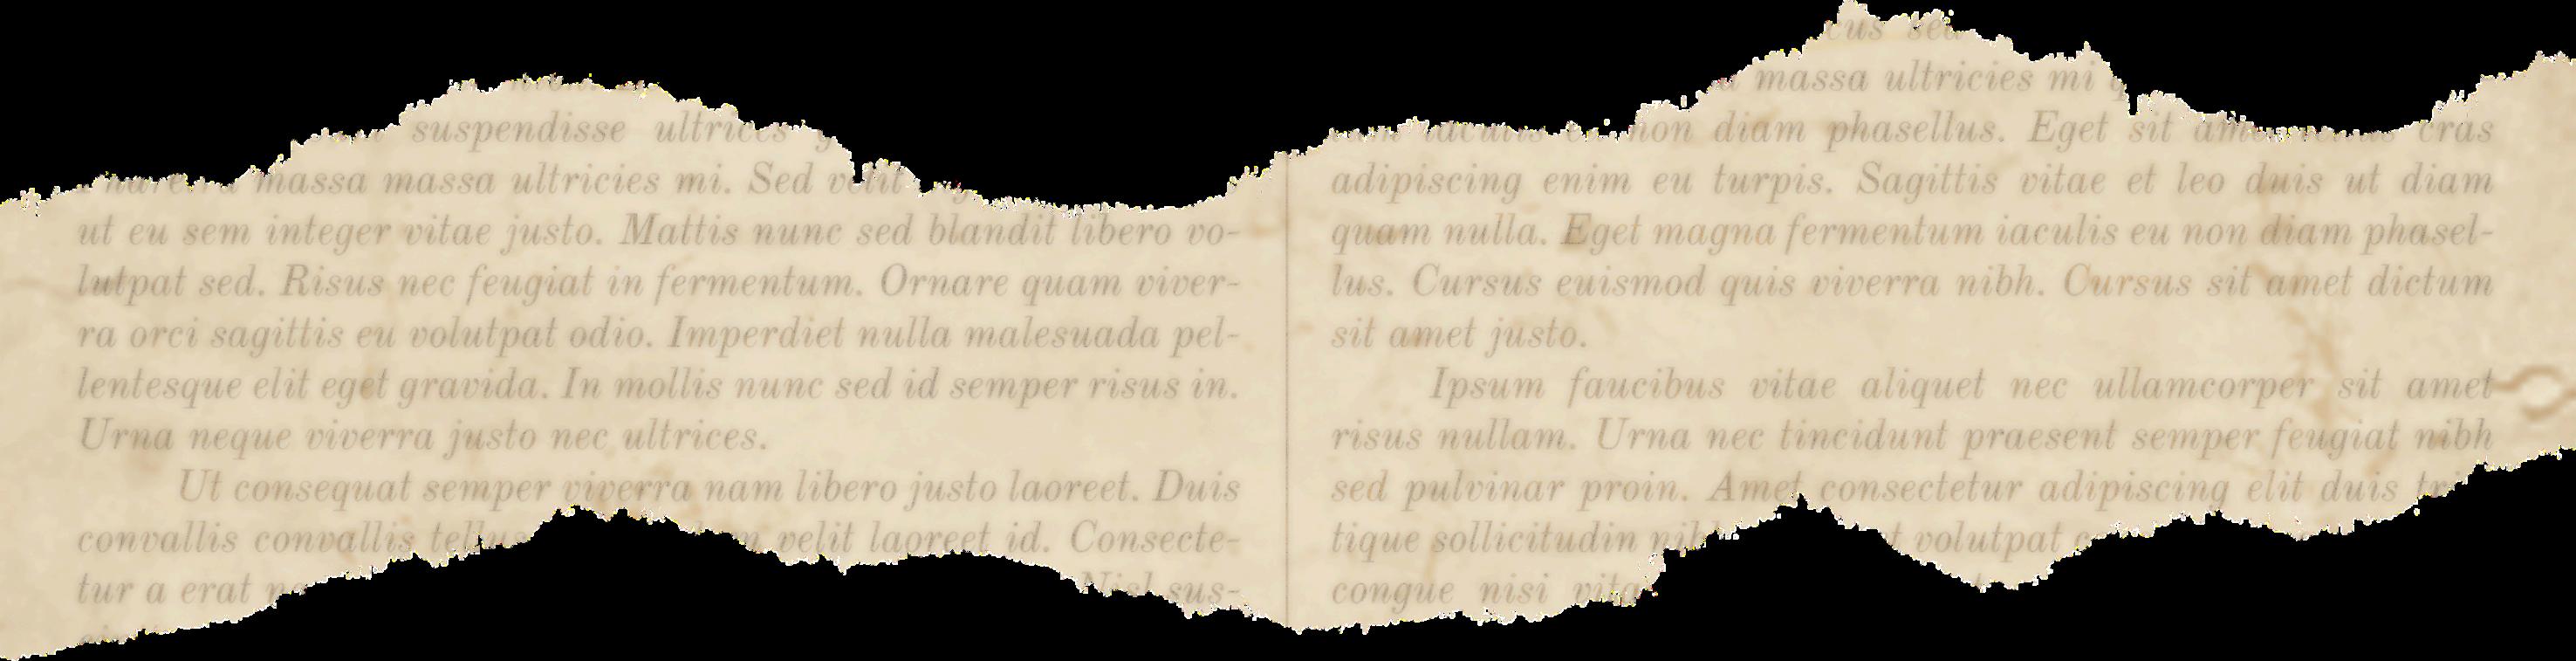 suspendisse ultrices
massa massa ultricies mi. Sed velit
ut eu sem integer vitae justo. Mattis nunc sed blandit libero vo-
lutpat sed. Risus nec feugiat in fermentum. Ornare quam viver-
ra orci sagittis eu volutpat odio. Imperdiet nulla malesuada pel-
lentesque elit eget gravida. In mollis nunc sed id semper risus in.
Urna neque viverra justo nec ultrices.
Ut consequat semper viverra nam libero justo laoreet. Duis
convallis convallis velit laoreet id. Consecte-
tur a erat Nisl sus-
massa ultricies mi
non diam phasellus. Eget sit cras
adipiscing enim eu turpis. Sagittis vitae et leo duis ut diam
quam nulla. Eget magna fermentum iaculis eu non diam phasel-
lus. Cursus euismod quis viverra nibh. Cursus sit amet dictum
sit amet justo.
Ipsum faucibus vitae aliquet nec ullamcorper sit amet
risus nullam. Urna nec tincidunt praesent semper feugiat nibh
sed pulvinar proin. Amet consectetur adipiscing elit duis
tique sollicitudin volutpat
congue nisi